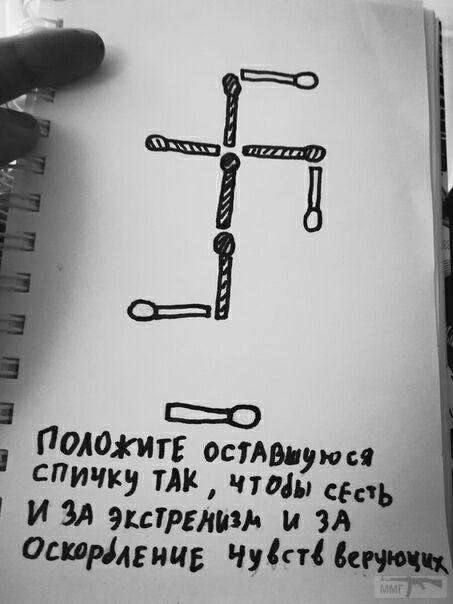 ПОЛОЖИТЕ ОСТАВШУЮСЯ
СПИЧКУ ТАК, ЧТОБЫ СЕСТЬ
И ЗА ЭКСТРЕМИЗМ И ЗА
ОСКОРБЛЕНИЕ ЧУВСТВ ВЕРУЮЩИХ
ММГ